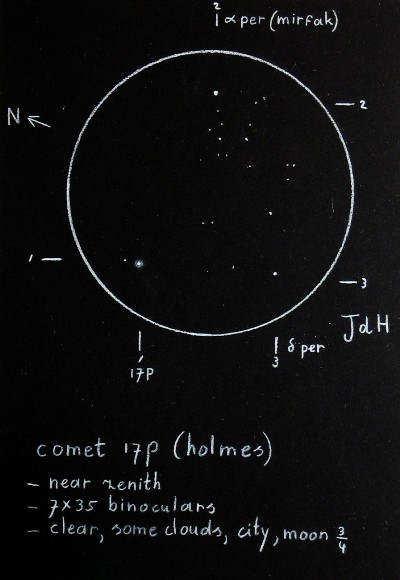 2
α per (mirfak)
2
N
1
3
JdH
1
17P
3
δ per
comet 17P (holmes)
- near zenith
- 7x35 binoculars
- clear, some clouds, city, moon 3/4